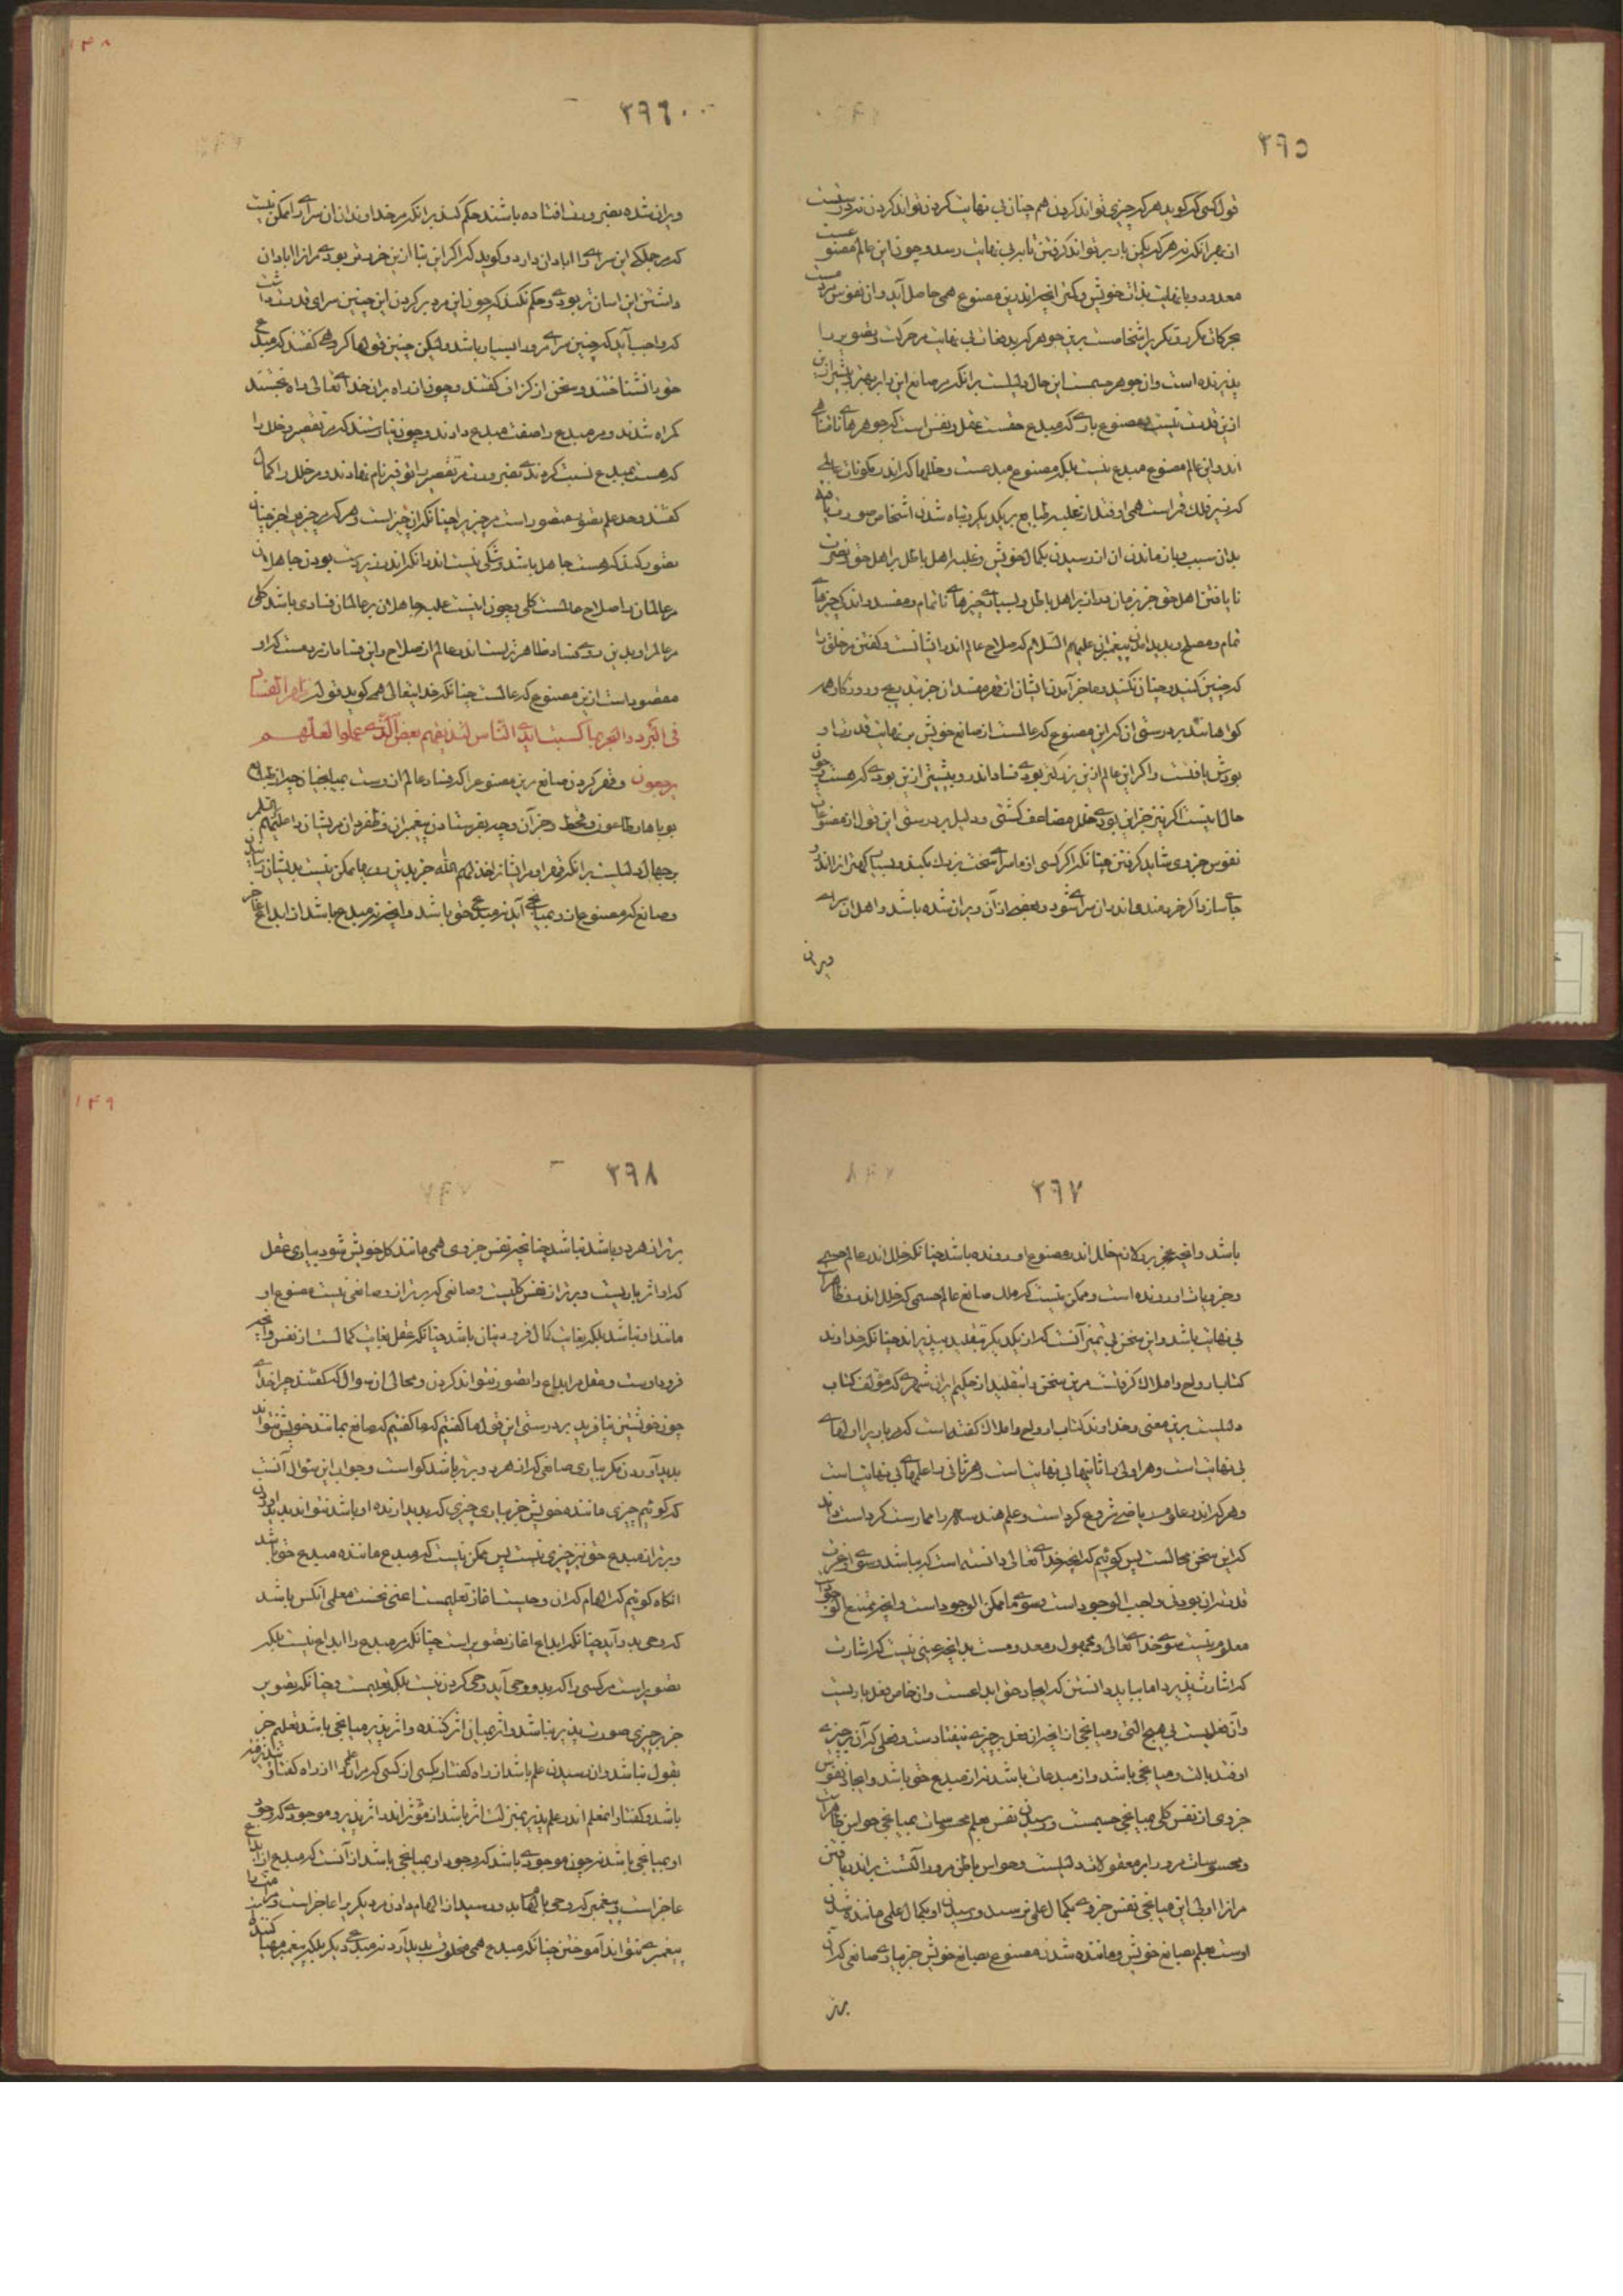 ۳۹۵
قول کسی که گوید هر که چیزی تواند کردن هم چنان بی نهایت کردن تواند کردن نه درست است
از بهر آنکه نه هر که یکمن بار بر تواند گرفتن تا بر بی نهایت رسد و چون این عالم مصنوعست
معدود و با نهایت بذات خویش و کثرت اندرین مصنوع همی حاصل آید و آن نفوس مردمست
بحرکات مکرر و تکریر اشخاصست برین جوهر که پدیدهات بی نهایت مر حرکت و تصویر را
پذیرنده است و آن جوهر جسمست این حال دلیلست بر آنکه مر صانع این را بر بهتر و بیشتر ازین
ازین قدرت نیست و مصنوع باری که مبدع حقست عقل و نفس است که جوهرهای نامتناهی
اند و این عالم مصنوع مبدع نیست بلکه مصنوع مبدعست و خللها که اندر مکونات عالمی
که زیر فلک قمر است همی اوفتد از غلبه طبایع بر یکدیگر و تباه شدن اشخاص صورت یافته
بدان سبب و باز ماندن آن از رسیدن بکمال خویش و غلبه اهل باطل بر اهل حق و نصرت
نا یافتن اهل حق جز بزمان دراز بر اهل باطل و بسیاری چیزهای ناتمام و مفسد و اندکی چیزهای
تمام و مصلح و پدید آمدن پیغمبران علیهم السلام که صلاح عالم اندر ایشانست و گفتن مر خلق را
که چنین کنید و چنان نکنید و عاجز آمدن ایشان از قهر مفسدان جز بتدریج و روزگار همه
گواهانند بر درستی آن که این مصنوع که عالمست از صانع خویش بر نهایت قدرت او
بودش یافتست و اگر این عالم ازین بزرگتر بودی فساد اندرو بیشتر ازین بودی که هست و چون
حال اینست اگر نیز جز این بودی خلل مضاعف گشتی و دلیل بر درستی این قول از مصنوعات
نفوس جزوی شاید گرفتن چنانکه اگر کسی از ما سرای سخت بزرگ بکند و بسیار کهتر از آن اندرو
جای سازد اگر خردمندی اندر آن سرای شود و بعضی از آن ویران شده باشد و اهل آن سرای
ویرانی
۱۴۸
۳۹۶
ویران شده بضرورت افتاده باشند حکم کند بر آنکه مر خداوندان آن سرای را ممکن نیست
که مر جملگی این سرای را آبادان دارد و گوید که اگر این بنا ازین خردتر بودی مر آنرا آبادان
داشتن این آسان تر بودی و حکم نکند که چون این مرد بر کردن این چنین سرای قدرت داشت
که واجب آید که چنین سرای مر او را بسیار باشد ولیکن چنین قولها گروهی گفتند که مبدع
حق را نشناختند و سخن از گزاف گفتند و چون از راه بران خدای تعالی راه نجستند
گمراه شدند و مر مبدع را صفت مبدع دادند و چون نیارستند که مر تقصیر و خلل را
که هست بمبدع نسبت کردندی بضرورت مر تقصیر را توفیر نام نهادند و مر خلل را کمال
گفتند و حد علم تصور متصور است مر چیز را چنانکه آن چیز است و هر که مر چیز را جز چنان
تصور کند که هست جاهل باشد و شکی نیست اندر آنکه اندر زیردست بودن جاهلان
مر عالمان را صلاح عالمست کلی و چون اینست غلبه جاهلان بر عالمان فسادی باشد کلی
مر عالم را و بدین روی فساد ظاهرترست اندر عالم از صلاح و این فساد مردمست که او
مقصودست ازین مصنوع که عالمست چنانکه خدایتعالی همی گوید قوله ظهر الفساد
فی البر و البحر بما کسبت ایدی الناس لیذیقهم بعض الذی عملوا لعلهم
یرجعون و قهر کردن صانع مرین مصنوع را که فساد عالم از وست بمیانجیان چیز از طبایع
بوباها و طاعون و قحط و جز آن و چه بفرستادن پیغمبران و ظفر دادن مریشان را علیهم السلام
بر جهال دلیلست بر آنکه قهر او مر ایشانرا خذلهم الله جز بدین رویها ممکن نیست بدیشان رسیدن
و صانع که مصنوع از و بمیانجی آید نه مبدع حق باشد و آنچه نه مبدع باشد از ابداع عاجز
۳۹۷
باشد و آنچه عجز برو لازم خلل اندر مصنوع او رونده باشد چنانکه خلل اندر عالم جسمی
و جزویات او رونده است و ممکن نیست که ملک صانع عالم جسمی که خلل اندرو ظاهرست
بی نهایت باشد و این سخن بی تمیز آنست که از یکدیگر بتقلید بپذیراند چنانکه خداوند
کتاب ارواح و املاک گرفتست مرین سخن را بتقلید از حکیم ایران شهری که مؤلف کتاب
دلیلست برین معنی و خداوند کتاب ارواح و املاک گفته است که مر باری را اولهای
بی نهایت است و هر اولی را ثانیهای بی نهایتست و هر ثانی را علمهای بی نهایتست
و هر که اندر علوم ریاضی شروع کرد است و علم هندسه را ممارست کرد است داند
که این سخن محالست پس گوئیم که آنچه خدای تعالی دانسته است که باشد و سوی او غرت
قدرت بر آن بودنی واجب الوجود است و سوی ما ممکن الوجود است و آنچه ممتنع الوجود
معلوم نیست سوی خدای تعالی و مجهول و معدومست بدانچه عینی نیست که اشارت
که اشارت پذیرد اما بباید دانستن که ایجاد حق ابداعست و آن خاص فعل باریست
و آن فعلیست بی هیچ التی و میانجی از آنچه آن فعل بر چیزی نیفتادست و فعلی که آن بر چیزی
اوفتد بآلت و میانجی باشد و از مبدعات باشد نه از مبدع حق باشد و ایجاد نفوس
جزوی از نفس کلی بمیانجی جسمست و رسیدن نفس بعلم محسوسات بمیانجی حواس ظاهرست
و محسوسات مرورا بر معقولات دلیلست و حواس باطن مرورا آلتست بر اندر یافتن
مر آنرا و بی این میانجی نفس جزوی بکمال علمی نرسد و رسیدن او بکمال علمی ماننده شدن
اوست بعلم بصانع خویش و ماننده شدن مصنوع بصانع خویش جز بیاری صانعی که آن
برتر
۱۴۹
۳۹۸
برتر از هر دو باشد نباشد چنانچه نفس جزوی همی مانند کل خویش شود بیاری عقل
که او اثر باریست و برتر از نفس کلیست و صانعی که برتر از و صانعی نیست مصنوع او
مانند او نباشد بلکه بغایت کمال فرود از آن باشد چنانکه عقل بغایت کمالست از نفس و آنچه
فرود اوست و عقل مر ابداع را تصور نتواند کردن و محالی آن سوال که گفتند چرا خدای
چون خویشتن نیافرید بر درستی این قول ما گفتیم که ما گفتیم که صانع بمانند خویش نتواند
پدید آوردن مگر بیاری صانعی که از هر دو برتر باشد گواست و جواب این سؤال آنست
که گوئیم چیزی ماننده خویش جز بیاری چیزی که پدید آرنده او باشد نتواند پدید آوردن
و برتر از مبدع حق نیز چیزی نیست پس ممکن نیست که مبدع ماننده مبدع حق باشد
آنگاه گوئیم که الهام که آن وحیست آغاز تعلیمست اعنی نخست معلمی آنکس باشد
که وحی بدو آید چنانکه ابداع آغاز تصویر است چنانکه مر مبدع را ابداع نیست بلکه
تصویر است مر کسی را که بدو وحی آید وحی کردن نیست بلکه تعلیمست و چنانکه تصویر
جز بر چیزی صورت پذیر نباشد و اثر میان اثر کننده و اثر پذیر میانجی باشد تعلیم جز
بقول نباشد و آن رسیدن علم باشد از راه گفتار بکسی از کسی که مر آن علم را از راه گفتار پذیرفته
باشد و گفتار از معلم اندر علم پذیر بمنزلت اثر باشد از مؤثر اندر اثر پذیر و موجودی که وجود
او بمیانجی باشد نه چون موجودی باشد که وجود او بی میانجی باشد از آنست که مبدع از ابداع
عاجز است و پیغمبر که وحی بالهام بدو رسید از الهام دادن مر دیگری را عاجز است و مر امت را
پیغمبری نتواند آموختن چنانکه مبدع همی مخلوق پدید آرد نه مبدعی دیگر بلکه پیغمبر مهیا کننده